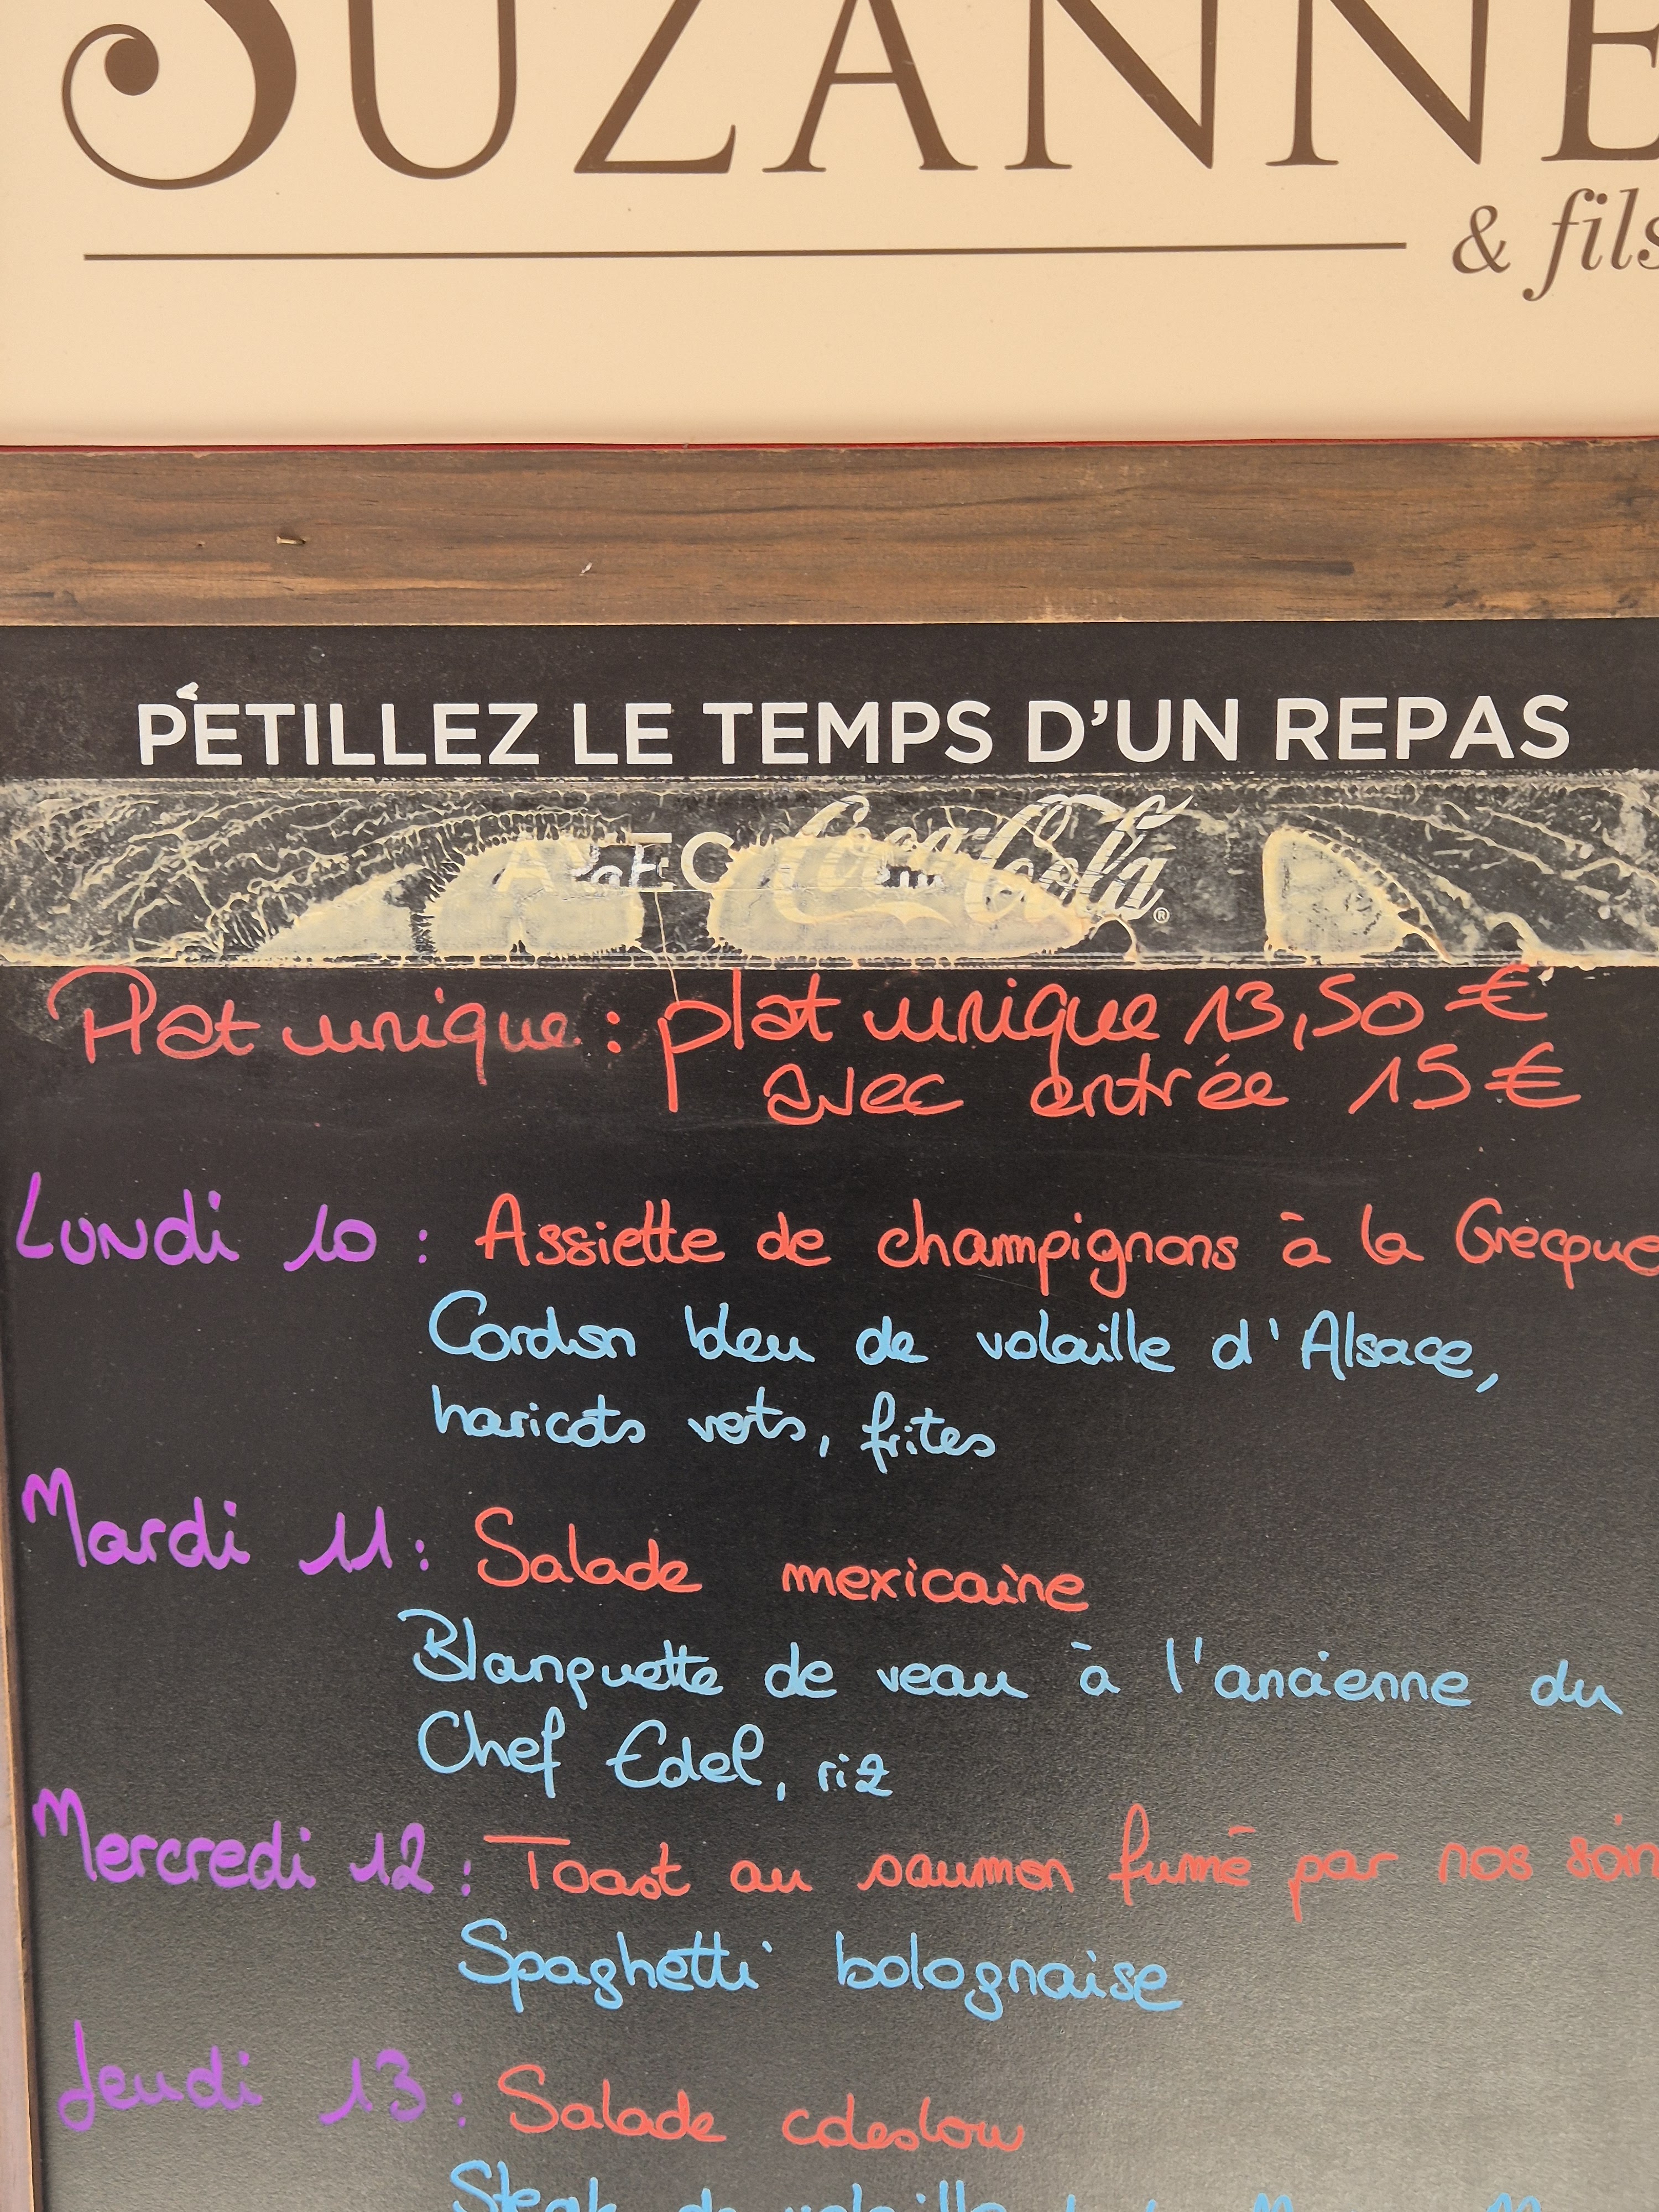 SUZANNE
& fils
PÉTILLEZ LE TEMPS D'UN REPAS
AVEC Coca-Cola®
Plat unique : plat unique 13,50 €
avec entrée 15 €
Lundi 10 : Assiette de champignons à la Grecque
Cordon bleu de volaille d'Alsace,
haricots verts, frites
Mardi 11 : Salade mexicaine
Blanquette de veau à l'ancienne du
Chef Edel, riz
Mercredi 12 : Toast au saumon fumé par nos soin
Spaghetti bolognaise
Jeudi 13 : Salade coleslow
Steak de volaille